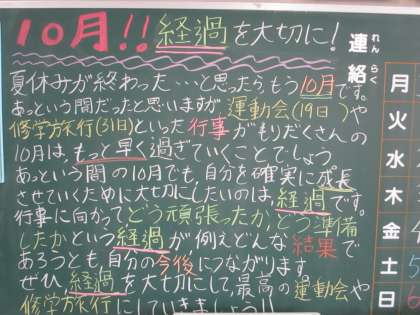 10月!! 経過を大切に!
夏休みが終わった…と思ったら、もう10月です。
あっという間だったと思いますが、運動会(19日)や
修学旅行(31日)といった行事がもりだくさんの
10月は、もっと早く過ぎていくことでしょう。
あっという間の10月でも、自分を確実に成長
させていくために大切にしたいのは、経過です。
行事に向かってどう頑張ったか、どう準備
したかという経過が、例えどんな結果で
あろうとも、自分の今後につながります。
ぜひ、経過を大切にして、最高の運動会や
修学旅行にしていきましょう!!
連絡
れんらく
月
火
水
木
金
土
日